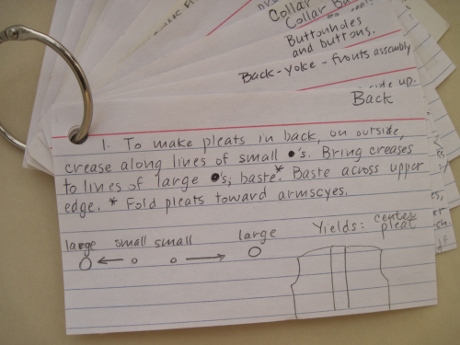 Collar
Collar
Buttonholes
and buttons.
Back-yoke-fronts assembly
Back
1. To make pleats in back, on outside,
crease along lines of small ●'s. Bring creases
to lines of large ●'s; baste.* Baste across upper
edge. * Fold pleats toward armscyes.
large small small large
Yields: center
pleat